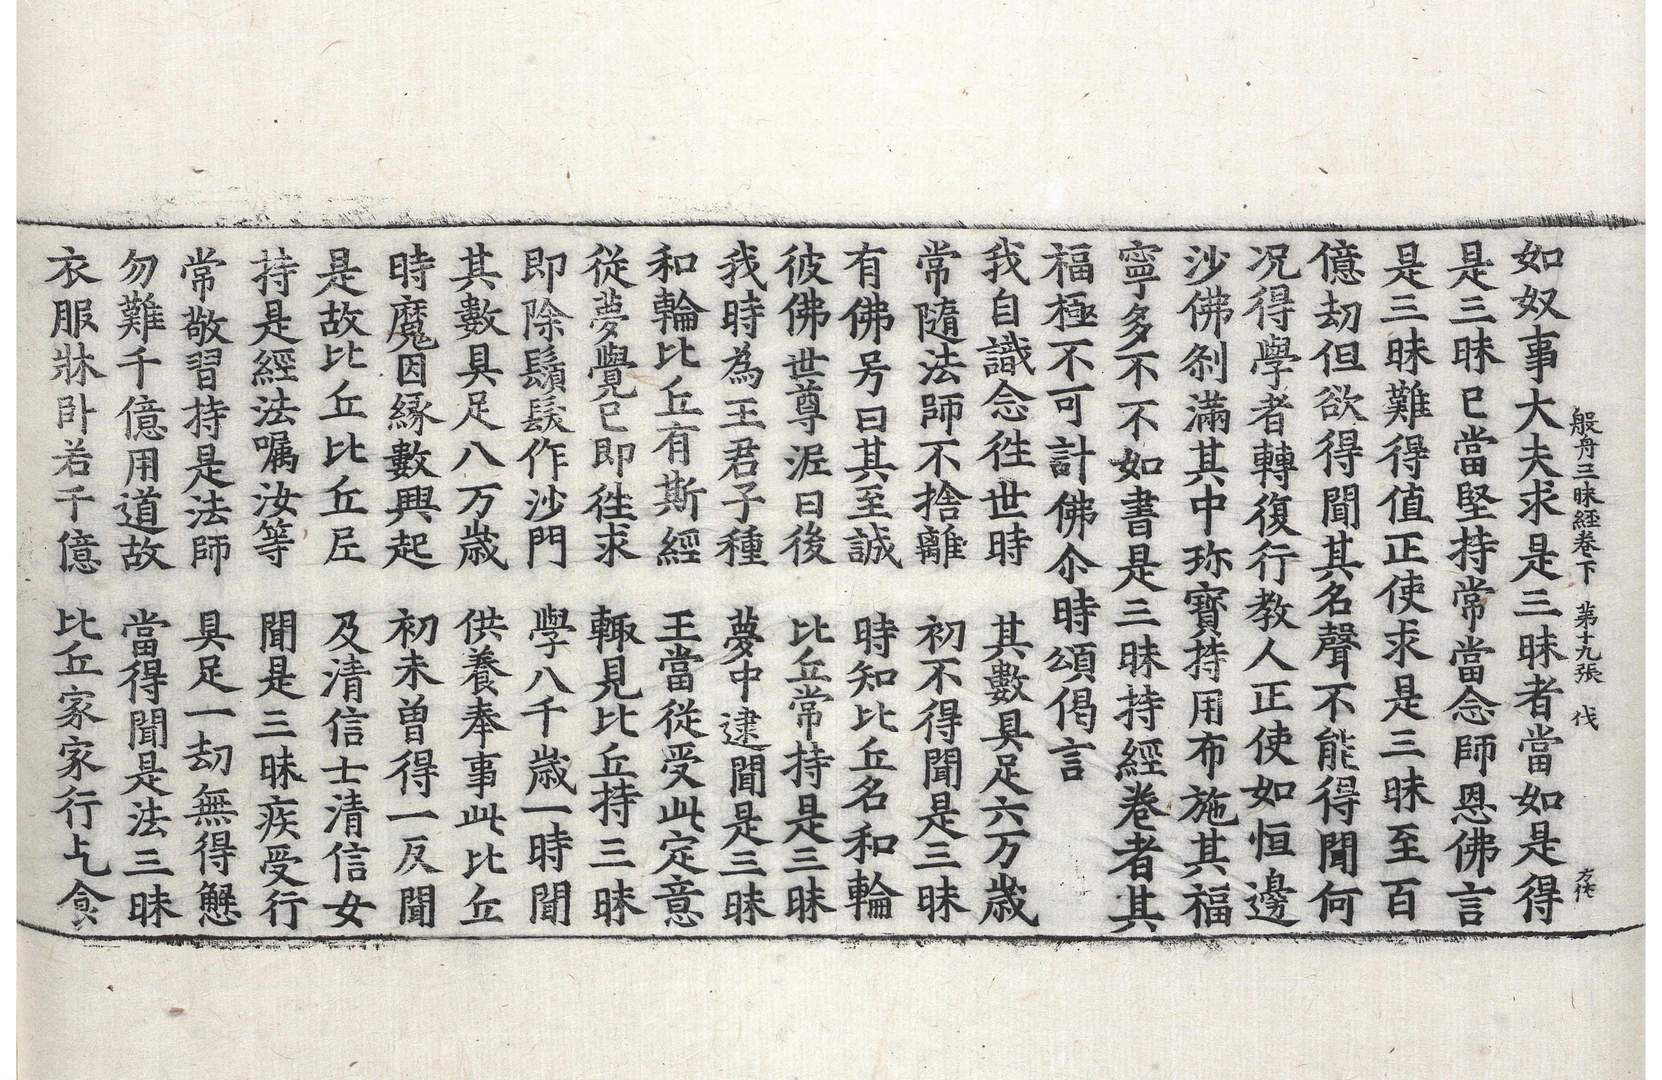 般舟三昧経卷下　第十九張　伐
如奴事大夫求是三昧者當如是得
是三昧已當堅持常當念師恩佛言
是三昧難得值正使求是三昧至百
億劫但欲得聞其名聲不能得聞何
况得學者轉復行教人正使如恒邊
沙佛剎滿其中珎寶持用布施其福
寧多不不如書是三昧持經卷者其
福極不可計佛尒時頌偈言
我自識念徃世時　其數具足六万歲
常隨法師不捨離　初不得聞是三昧
有佛号曰其至誠　時知比丘名和輪
彼佛世尊泥曰後　比丘常持是三昧
我時為王君子種　夢中逮聞是三昧
和輪比丘有斯經　王當從受此定意
從夢覺已即徃求　輙見比丘持三昧
即除鬚髮作沙門　學八千歲一時聞
其數具足八万歲　供養奉事此比丘
時魔因緣數興起　初未曾得一反聞
是故比丘比丘尼　及清信士清信女
持是經法囑汝等　聞是三昧疾受行
常敬習持是法師　具足一劫無得懈
勿難千億用道故　當得聞是法三昧
衣服牀臥若千億　比丘家家行乞食